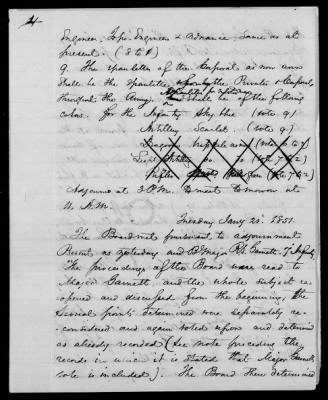 4
Engineer, Topl. Engineer & Ordnance, Same as at
present. (8 to 1)
9. The epaulette of the Corporal as now worn
shall be the Epaulette for the Private & Corporal
throughout the Army.
shall be of the following
colors. for the Infantry Sky blue (Vote 9.)
Artillery Scarlet. (Vote 9.)
Dragoons
Light Artillery do. do
Rifles Green
Adjourned at 3 P.M. to meet to-morrow at
11 A.M.
Tuesday Jany 21. 1851.
The Board met pursuant to adjournment
Present as yesterday and Bt Major R.S. Garnett, 7th Infantry
The proceedings of the Board were read to
Major Garnett, and the whole subject re-
opened and discussed from the beginning, the
several points determined were separately re-
considered and again voted upon and determined
as already recorded (See note preceding the
record in which it is stated that Major Garnett's
vote is included). The Board then determined